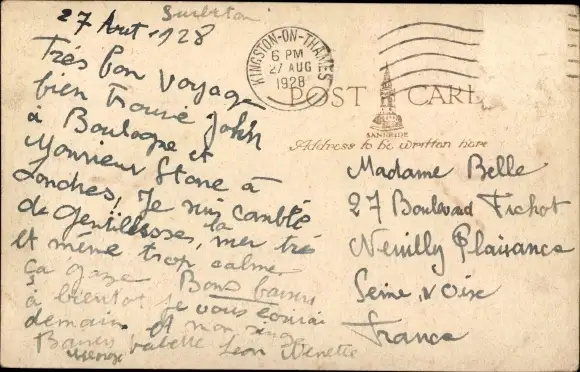 Surbiton
27 Aout 1928
Très bon voyage
bien trouvé John
à Boulogne et
Monsieur Stone à
Londres, Je suis comblé
de Gentillesses, la mer très
et même trop calme
ça gaze Bons baisers
à bientot je vous écrirai
demain et mon
Baisers Babette Léon Nénette
KINGSTON-ON-THAMES
6 PM
27 AUG
1928
POST CARD
Address to be written here
Madame Belle
27 Boulevard Fichot
Neuilly Plaisance
Seine & Oise
France